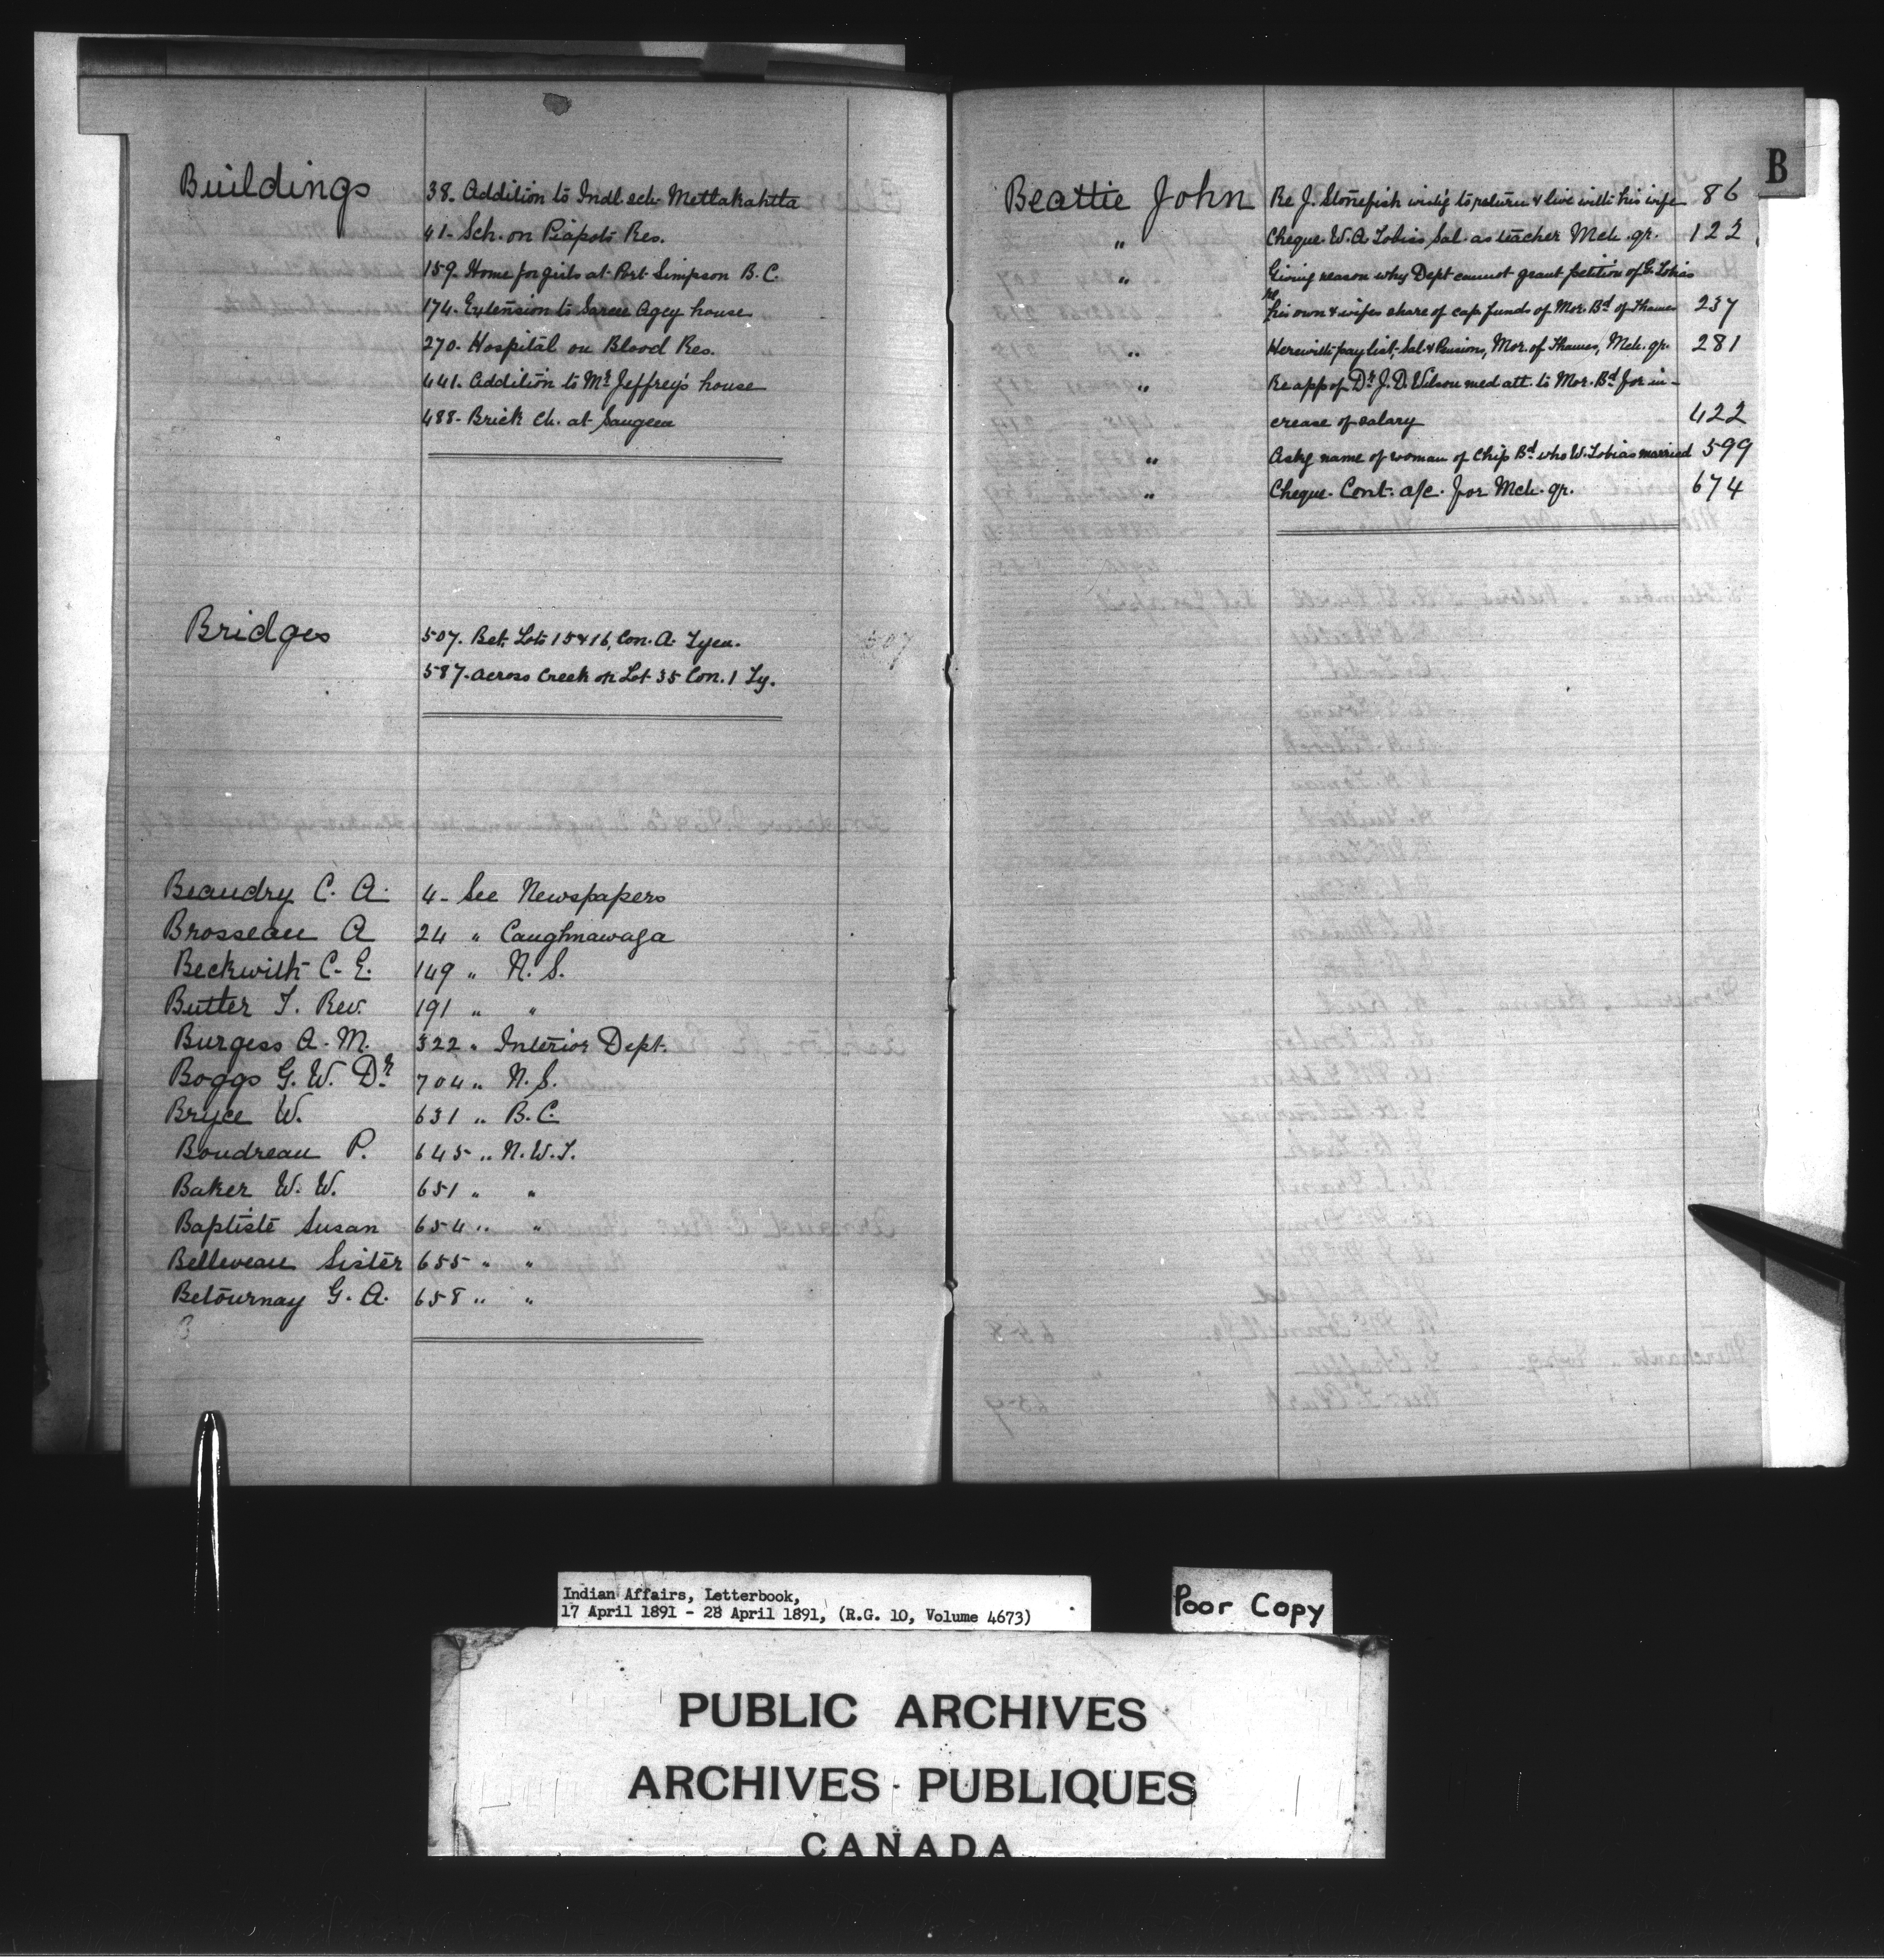 Buildings 38. Addition to Indl. sch. Metlakahtla
41- Sch. on Piapots Res.
159. Home for girls at Port Simpson B.C.
174. Extension to Sarcee Agcy house
270. Hospital on Blood Res.
441. Addition to Mr Jeffrey's house
488- Brick Ch. at Saugeen
Bridges 507. Bet. Lots 15 & 16, Con. A. Tyen.
587. Across Creek on Lot 35 Con. 1 Ty.
Beaudry C. A. 4- See Newspapers
Brosseau A 24 " Caughnawaga
Beckwith C. E. 149 " N. S.
Butler T. Rev. 191 " "
Burgess A. M. 322 " Interior Dept.
Boggs G. W. Dr 704 " N. S.
Bryce W. 631 " B. C.
Boudreau P. 645 " N. W. T.
Baker W. W. 651 " "
Baptiste Susan 654 " "
Belleveau Sister 655 " "
Betournay G. A. 658 " "
B
B
Beattie John Re J. Stonefish wish'g to return & live with his wife 86
" Cheque. W. A. Tobias Sal. as teacher Mch. qr. 122
" Giving reason why Dept cannot grant petition of G. Tobias
re his own & wifes share of cap. funds of Mor. Bd of Thames 237
" Herewith pay list, Sal. & Pensions, Mor. of Thames, Mch. qr. 281
" Re app of Dr J. D. Wilson med att. to Mor. Bd for in-
crease of salary 422
" Askg name of woman of Chip Bd who W. Tobias married 599
" Cheque. Cont. a/c. for Mch. qr. 674
Indian Affairs, Letterbook,
17 April 1891 - 28 April 1891, (R.G. 10, Volume 4673)
Poor Copy
PUBLIC ARCHIVES
ARCHIVES PUBLIQUES
CANADA